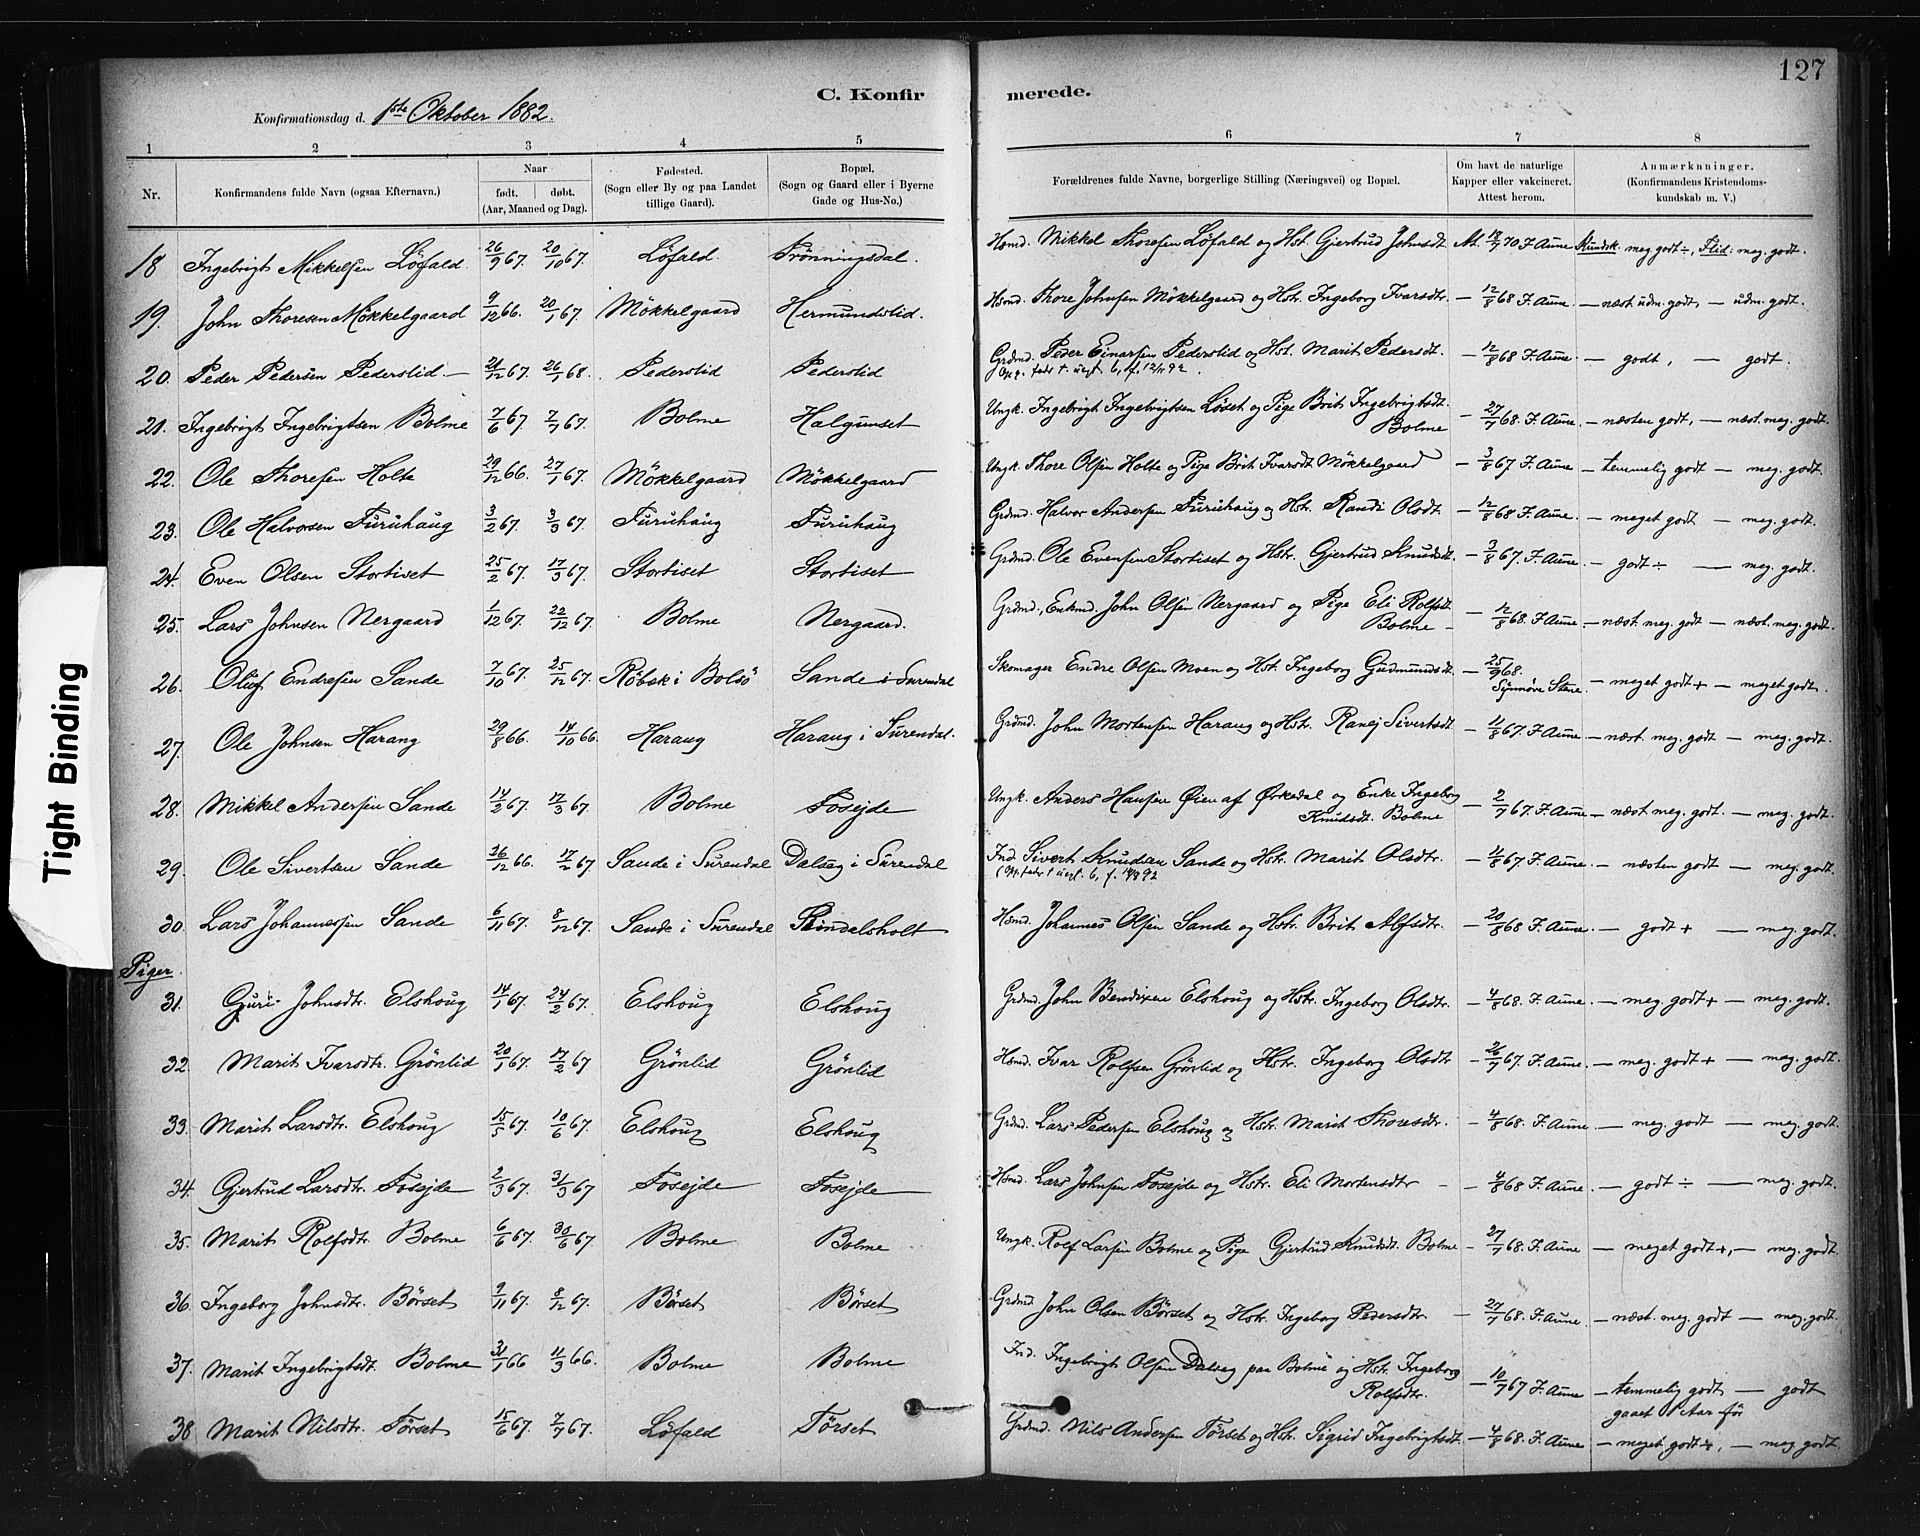 127
C. Konfirmerede.
Konfirmationsdag d. 1ste Oktober 1882.
1 2 3 4 5 6 7 8
Nr. Konfirmandens fulde Navn (ogsaa Efternavn). Naar født. døbt. (Aar, Maaned og Dag). Fødested. (Sogn eller By og paa Landet tillige Gaard). Bopæl. (Sogn og Gaard eller i Byerne Gade og Hus-No.) Forældrenes fulde Navne, borgerlige Stilling (Næringsvei) og Bopæl. Om havt de naturlige Kapper eller vakcineret. Attest herom. Anmærknninger. (Konfirmandens Kristendomskundskab m. V.)
18 Ingebrigt Mikkelsen Löfald. 26/9 67. 20/10 67. Löfald. Trönningsdal. Hsmd. Mikkel Thoresen Löfald og Hst. Gjertrud Johnsdt. At. 18/7 70 F. Aune Kundsk. meg godt ÷, Flid: meg. godt.
19. John Thoresen Mökkelgaard 9/12 66. 20/1 67. Mökkelgaard Hermundslid. Hsmd. Thore Johnsen Mökkelgaard og Hstr. Ingeborg Ivarsdtr. — 12/8 68 F. Aune. — næst. udm. godt, — udm. godt.
20. Peder Pedersen Pederslid — 21/12 67. 26/1 68. Pederslid Pederslid Grdmd. Peder Einarsen Pederslid og Hst. Marit Pedersdt. — 12/8 68 F. Aune. — godt, — godt.
21. Ingebrigt Ingebrigtsen Bolme 7/6 67. 7/7 67. Bolme Halgunset Ungk. Ingebrigt Ingebrigtsen Løset og Pige Brit Ingebrigtsdt. Bolme — 27/7 68. F. Aune. — næsten godt, — næst. meg. godt.
22. Ole Thoresen Holte 29/12 66. 27/1 67. Mökkelgaard Mökkelgaard Ungk. Thore Olsen Holte og Pige Brit Ivarsdt Mökkelgaard — 3/8 67 F. Aune — temmelig godt — meg. godt.
23. Ole Halvorsen Furuhaug 3/2 67. 3/3 67. Furuhaug Furuhaug Grdmd. Halvor Andersen Furuhaug og Hstr. Randi Olsdt. — 12/8 68 F. Aune. — meget godt — meg. godt.
24. Even Olsen Stortiset 25/2 67. 17/3 67. Stortiset Stortiset Grdmd. Ole Evensen Stortiset og Hstr. Gjertrud Knudsdt. — 3/8 67. F. Aune — godt ÷ — meg. godt.
25. Lars Johnsen Nergaard 1/12 67. 22/12 67. Bolme Nergaard. Grdmd., Enkmd. John Olsen Nergaard og Pige Eli Rolfsdt. Bolme — — 12/8 68. F. Aune. — næst. meg. godt — næst. meg. godt.
26. Oluf Endresen Sande 7/10 67. 25/12 67. Röbæk i Bolsö Sande i Surendal Skomager Endre Olsen Moen og Hst. Ingeborg Gudmundsdt. — 25/9 68. Synnøve Stene. — meget godt + — meget godt.
27. Ole Johnsen Harang 29/8 66. 14/10 66. Harang Harang i Surendal. Grdmd. John Mortensen Harang og Hst. Ranej Sivertsdt — 11/8 67. F. Aune — næst. meg. godt — meg. godt.
28. Mikkel Andersen Sande 14/2 67. 17/3 67. Bolme Fosejde Ungk. Anders Hansen Øien af Ørkedal og Enke Ingeborg Knudsdt. Bolme — 2/7 67. F. Aune — næst meg. godt. — meg. godt.
29. Ole Sivertsen Sande 26/12 66. 17/2 67. Sande i Surendal Dalsæg i Surendal Ind. Sivert Knudsen Sande og Hstr. Marit Olsdtr. — 4/8 67. F. Aune — næsten godt — meg. godt.
30. Lars Johannessen Sande 6/11 67. 8/12 67. Sande i Surendal Rindalsholt Hsmd. Johannes Olsen Sande og Hstr. Brit Alfsdtr. — 20/8 68 F. Aune. — godt + — meg. godt.
Piger.
31. Guri Johnsdtr. Elshoug 14/1 67. 24/2 67. Elshoug Elshoug Grdmd. John Bendixen Elshoug og Hstr. Ingeborg Olsdtr. — 4/8 68. F. Aune — meg. godt + — meg. godt.
32. Marit Ivarsdtr. Grönlid 20/1 67. 17/2 67 Grönlid Grönlid Hsmd. Ivar Rolfsen Grönlid og Hstr. Ingeborg Olsdtr — 26/7 67. F. Aune. — meg. godt + — meg. godt.
33. Marit Larsdtr. Elshoug 15/5 67. 10/6 67. Elshoug Elshoug Grdmd. Lars Pedersen Elshoug og Hstr. Marit Thoresdtr. — 4/8 68. F. Aune. — meg. godt — meg. godt.
34. Gjertrud Larsdtr. Fosejde 2/3 67. 31/3 67 Fosejde Fosejde Hsmd. Lars Johnsen Fosejde og Hstr. Eli Mortensdtr — — 4/8 68 F. Aune. — godt ÷ — meg. godt.
35. Marit Rolfsdtr Bolme 6/6 67. 30/6 67. Bolme Bolme Ungk. Rolf Larsen Bolme og Pige Gjertrud Knudsdt. Bolme — 27/7 68. F. Aune — meget godt +, — meg. godt.
36. Ingeborg Johnsdtr. Börset 9/11 67. 8/12 67. Börset Börset Grdmd. John Olsen Börset og Hstr. Ingeborg Pedersdtr — 27/7 68. F. Aune — næst. meg. godt — meg. godt.
37. Marit Ingebrigtsdt. Bolme 31/1 66 11/3 66. Bolme Bolme Ind. Ingebrigt Olsen Dalsæg paa Bolme og Hst. Ingeborg Rolfsdtr. — 10/7 67 F. Aune — temmelig godt — godt
gaaet 1 Aar før
38 Marit Nilsdtr. Törset 15/6 67. 7/7 67. Löfald Törset Grdmd. Nils Andersen Törset og Hstr. Sigrid Ingebrigtsdt. — 4/8 68. F. Aune — meget godt +, — meg. godt.
Tight Binding